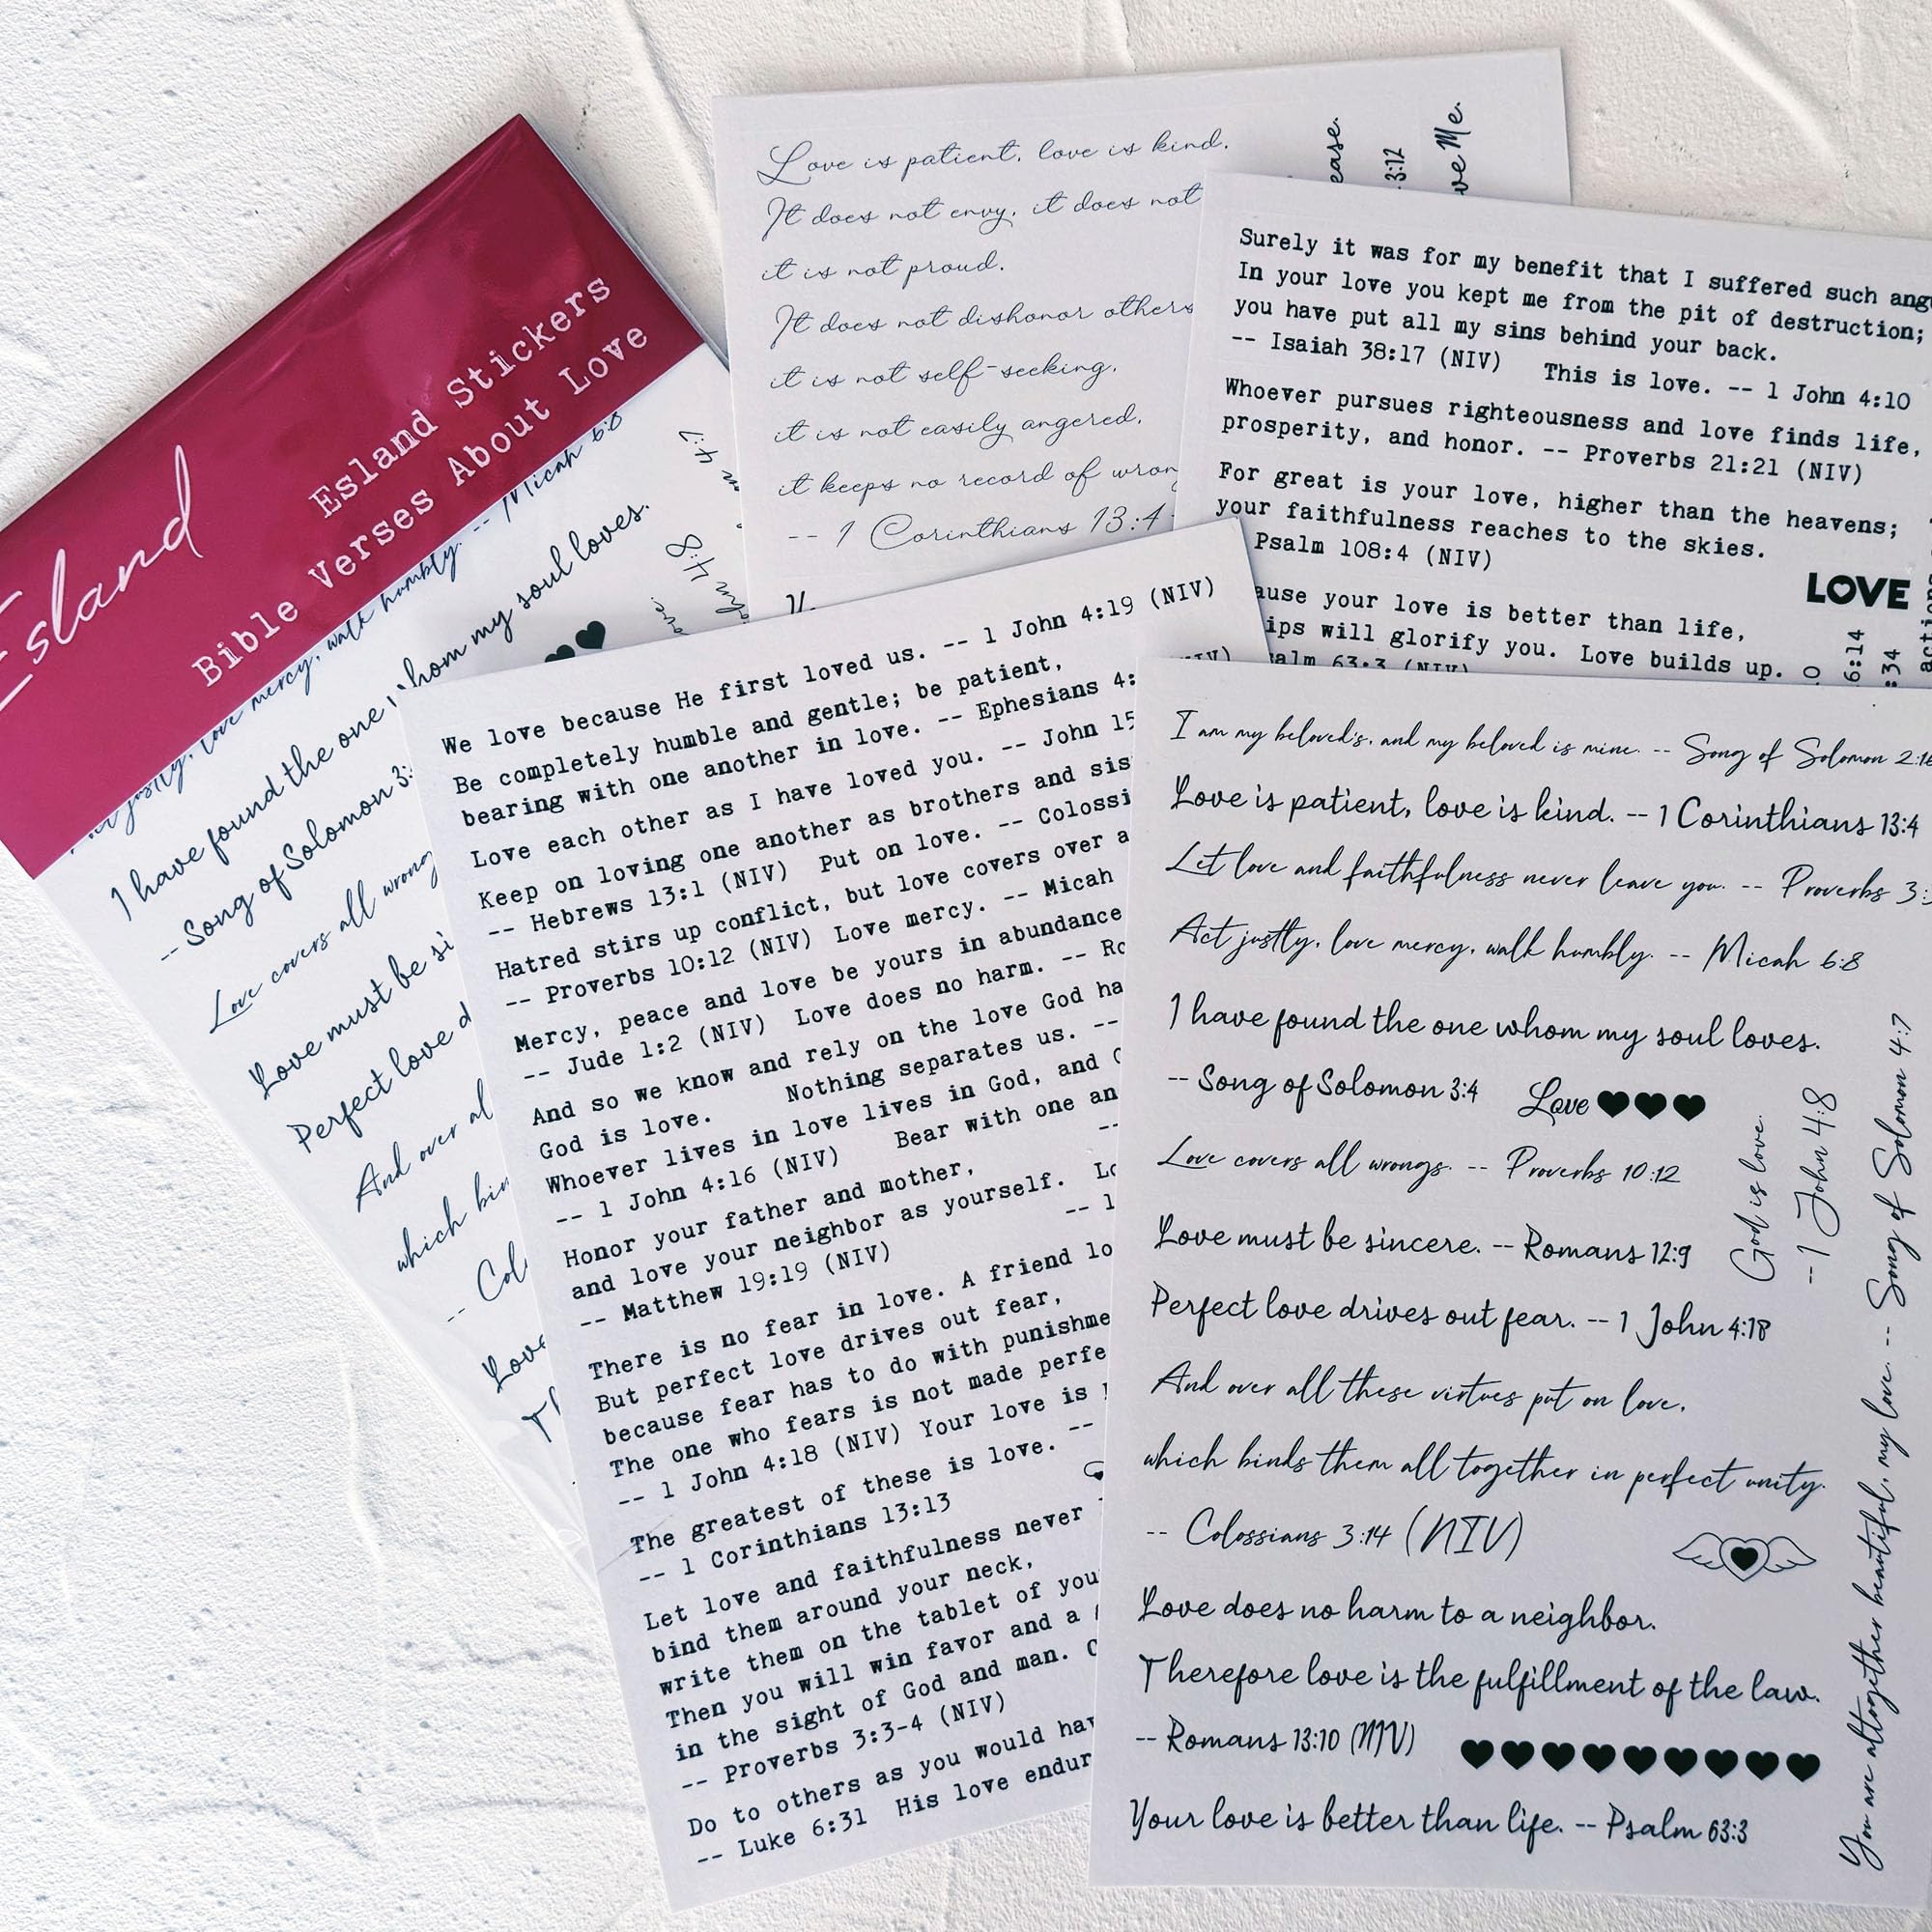 Esland
Esland Stickers
Bible Verses About Love
And justly, love mercy, walk humbly. -- Micah 6:8
I have found the one whom my soul loves.
-- Song of Solomon 3:
Love covers all wrong
Love must be si
Perfect love d
And over al
which bin
-- Col
Love
Th
Love is patient, love is kind.
It does not envy, it does not
it is not proud.
It does not dishonor others
it is not self-seeking,
it is not easily angered,
it keeps no record of wron
-- 1 Corinthians 13:4
ease.
3:12
ve Me.
Surely it was for my benefit that I suffered such ang
In your love you kept me from the pit of destruction;
you have put all my sins behind your back.
-- Isaiah 38:17 (NIV) This is love. -- 1 John 4:10
Whoever pursues righteousness and love finds life,
prosperity, and honor. -- Proverbs 21:21 (NIV)
For great is your love, higher than the heavens;
your faithfulness reaches to the skies.
Psalm 108:4 (NIV)
ause your love is better than life,
ips will glorify you. Love builds up.
salm 63:3 (NIV)
LOVE
6:14
:34
We love because He first loved us. -- 1 John 4:19 (NIV)
Be completely humble and gentle; be patient,
bearing with one another in love. -- Ephesians 4:
Love each other as I have loved you. -- John 15
Keep on loving one another as brothers and sis
-- Hebrews 13:1 (NIV) Put on love. -- Colossi
Hatred stirs up conflict, but love covers over a
-- Proverbs 10:12 (NIV) Love mercy. -- Micah
Mercy, peace and love be yours in abundance
-- Jude 1:2 (NIV) Love does no harm. -- Ro
And so we know and rely on the love God ha
God is love. Nothing separates us. --
Whoever lives in love lives in God, and G
-- 1 John 4:16 (NIV) Bear with one an
Honor your father and mother, --
and love your neighbor as yourself. Lo
-- Matthew 19:19 (NIV) -- 1
There is no fear in love. A friend lo
But perfect love drives out fear,
because fear has to do with punishme
The one who fears is not made perfe
-- 1 John 4:18 (NIV) Your love is
The greatest of these is love. --
-- 1 Corinthians 13:13
Let love and faithfulness never
bind them around your neck,
write them on the tablet of you
Then you will win favor and a
in the sight of God and man.
-- Proverbs 3:3-4 (NIV)
Do to others as you would hav
-- Luke 6:31 His love endur
I am my beloved's, and my beloved is mine. -- Song of Solomon 2:16
Love is patient, love is kind. -- 1 Corinthians 13:4
Let love and faithfulness never leave you. -- Proverbs 3:
Act justly, love mercy, walk humbly. -- Micah 6:8
I have found the one whom my soul loves.
-- Song of Solomon 3:4 Love
Love covers all wrongs. -- Proverbs 10:12
Love must be sincere. -- Romans 12:9
Perfect love drives out fear. -- 1 John 4:18
And over all these virtues put on love,
which binds them all together in perfect unity.
-- Colossians 3:14 (NIV)
Love does no harm to a neighbor.
Therefore love is the fulfillment of the law.
-- Romans 13:10 (NIV)
Your love is better than life. -- Psalm 63:3
God is love.
-- 1 John 4:8
You are altogether beautiful, my love. -- Song of Solomon 4:7